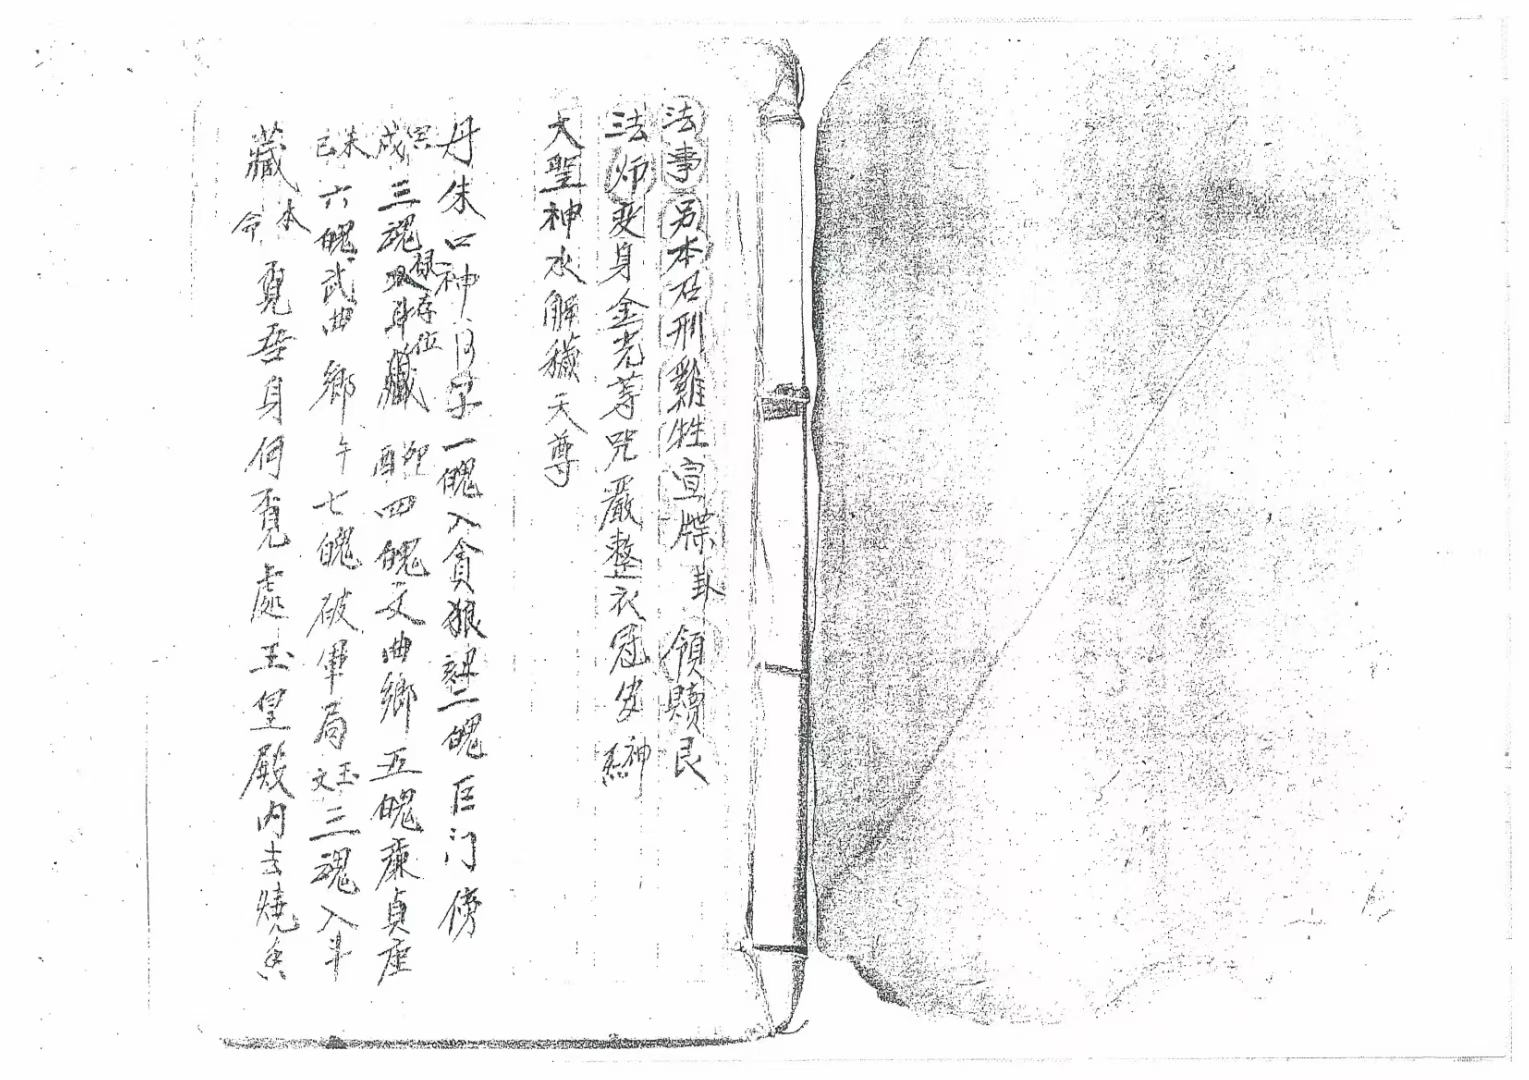 法事另本召刑雞牲宣牒卦領賧良
法師變身金光等咒嚴整衣冠安神
大聖神水解穢天尊
丹朱口神一魄入貪狼二魄巨门傍
戌三魂祿存位藏酉卯四魄文曲鄉五魄廉貞座
巳未六魄武曲鄉午七魄破軍局玉文三魂入斗
藏本命覔吾身何覔處玉皇殿内去燒香